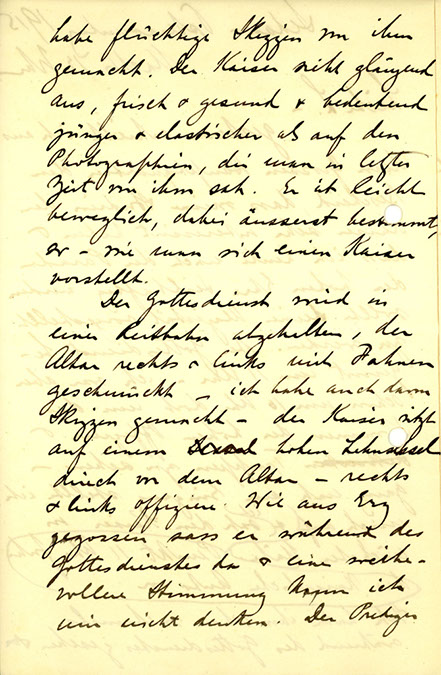 habe flüchtige Skizzen von ihm
gemacht. Der Kaiser sieht glänzend
aus, frisch & gesund & bedeutend
jünger & elastischer als auf den
Photographien, die man in letzter
Zeit von ihm sah. Er ist leicht
beweglich, dabei äusserst bestimmt,
er – wie man sich einen Kaiser
vorstellt.
Der Gottesdienst wird in
einer Reitbahn abgehalten, der
Altar rechts & links mit Fahnen
geschmückt – ich habe auch davon
Skizzen gemacht – der Kaiser sitzt
auf einem hohen Lehnsessel
direct vor dem Altar – rechts
& links Offiziere. Wie aus Erz
gegossen sass er während des
Gottesdienstes da & eine weihe-
vollere Stimmung kann ich
mir nicht denken. Der Prediger